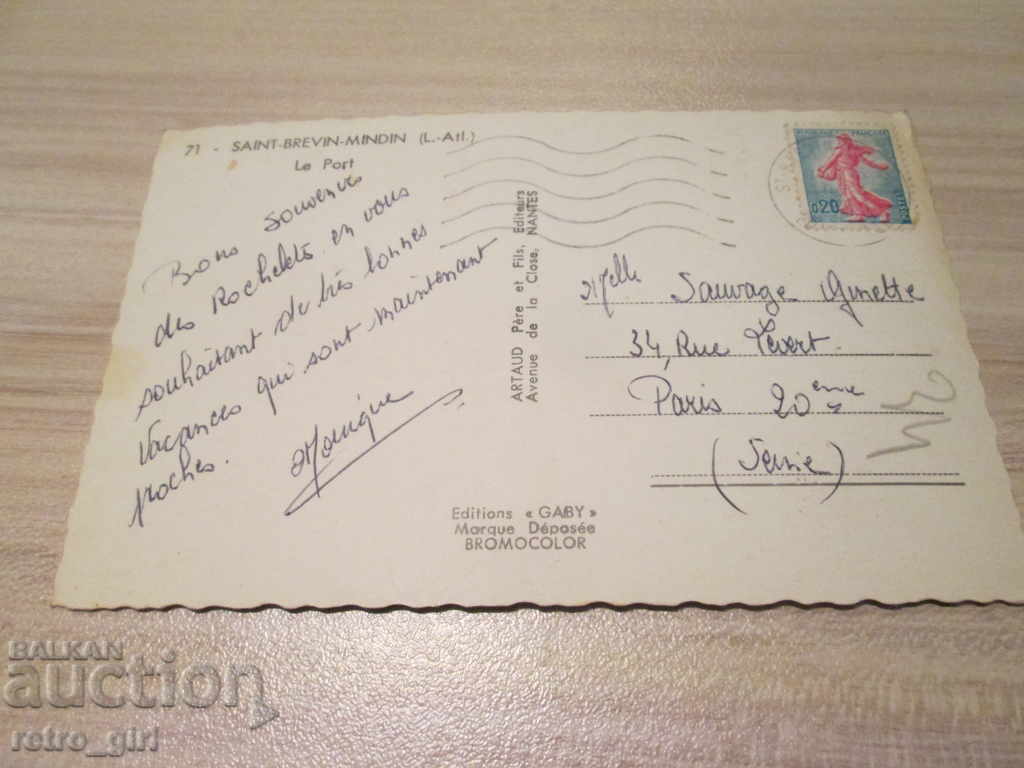 71 - SAINT-BREVIN-MINDIN (L.-Atl.)
Le Port
Bons Souvenirs
des Rochelets en vous
souhaitant de très bonnes
Vacances qui sont maintenant
proches.
Monique
ARTAUD Père et Fils, Editeurs
Avenue de la Close, NANTES
Editions « GABY »
Marque Déposée
BROMOCOLOR
REPUBLIQUE FRANÇAISE
0,20
POSTES
Melle Sauvage Ginette
34, Rue Pévert.
Paris 20ème
(Seine)
BALKAN
auction
retro_girl